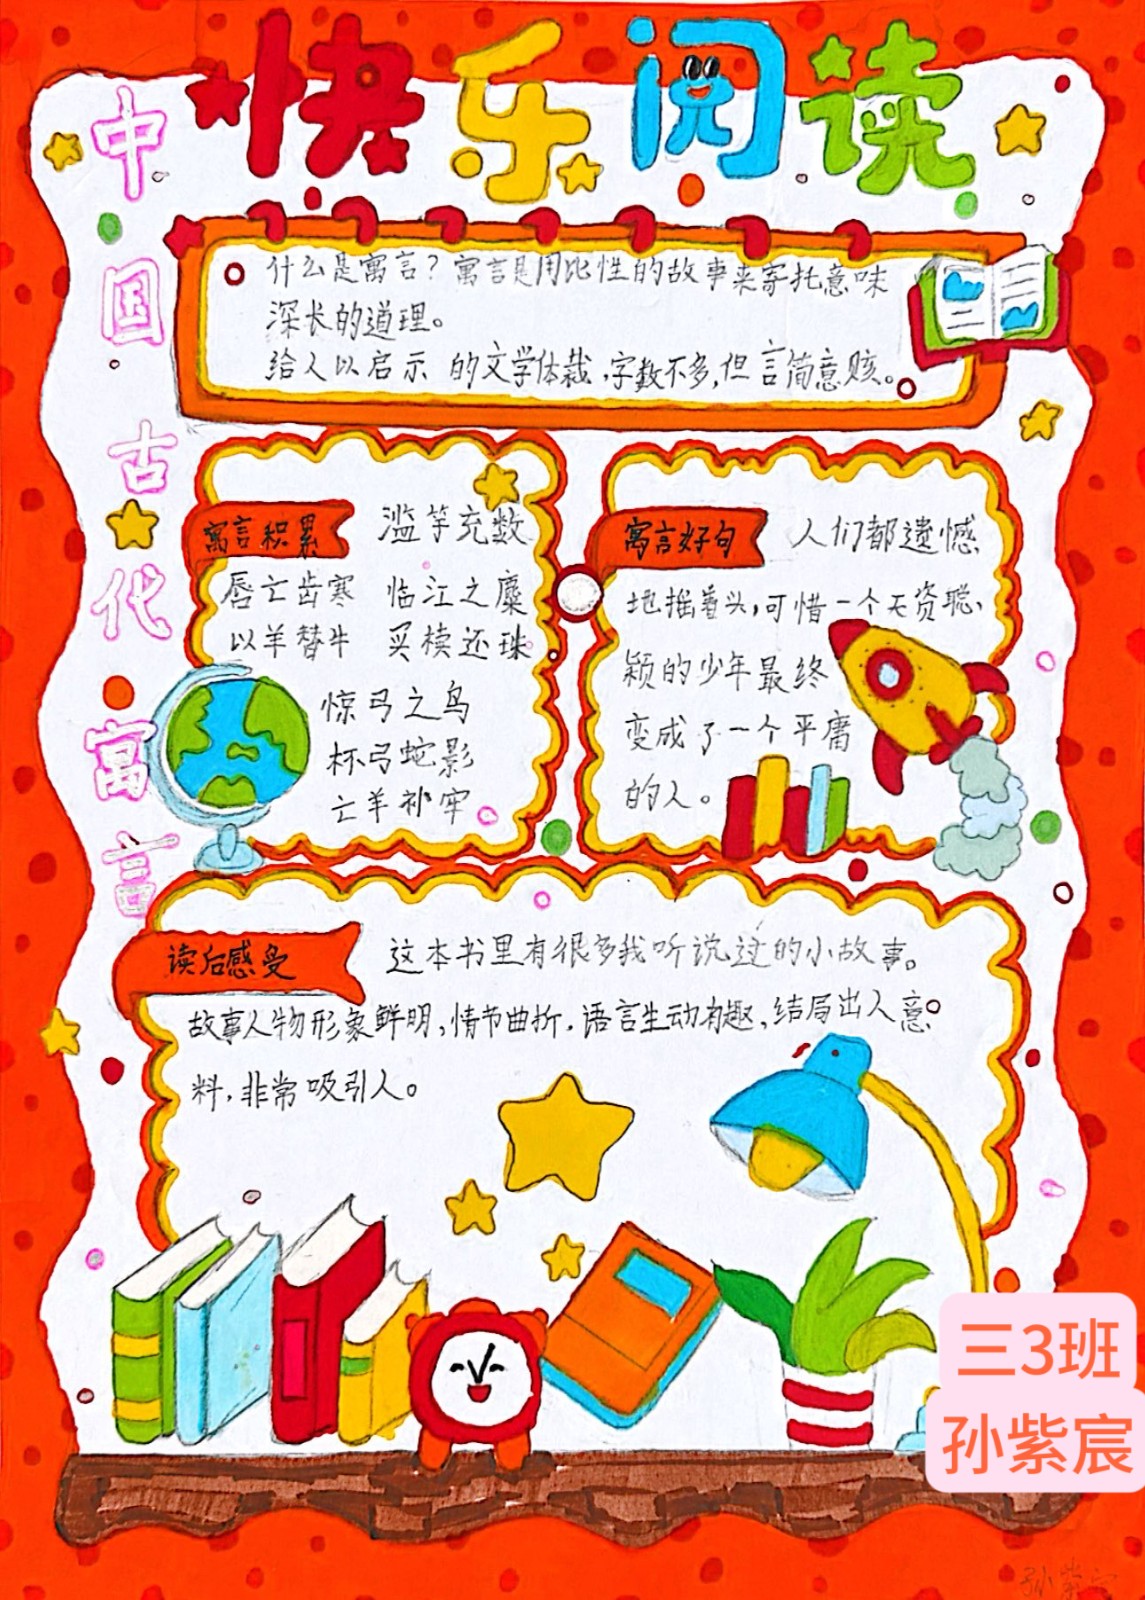 快乐阅读
中国古代寓言
什么是寓言？寓言是用比性的故事来寄托意味
深长的道理。
给人以启示 的文学体裁，字数不多，但言简意赅。
寓言积累
滥竽充数
唇亡齿寒 临江之麋
以羊替牛 买椟还珠
惊弓之鸟
杯弓蛇影
亡羊补牢
寓言好句
人们都遗憾
地摇着头，可惜一个天资聪、
颖的少年最终
变成了一个平庸
的人。
读后感受
这本书里有很多我听说过的小故事。
故事人物形象鲜明，情节曲折，语言生动有趣，结局出人意
料，非常吸引人。
三3班
孙紫宸